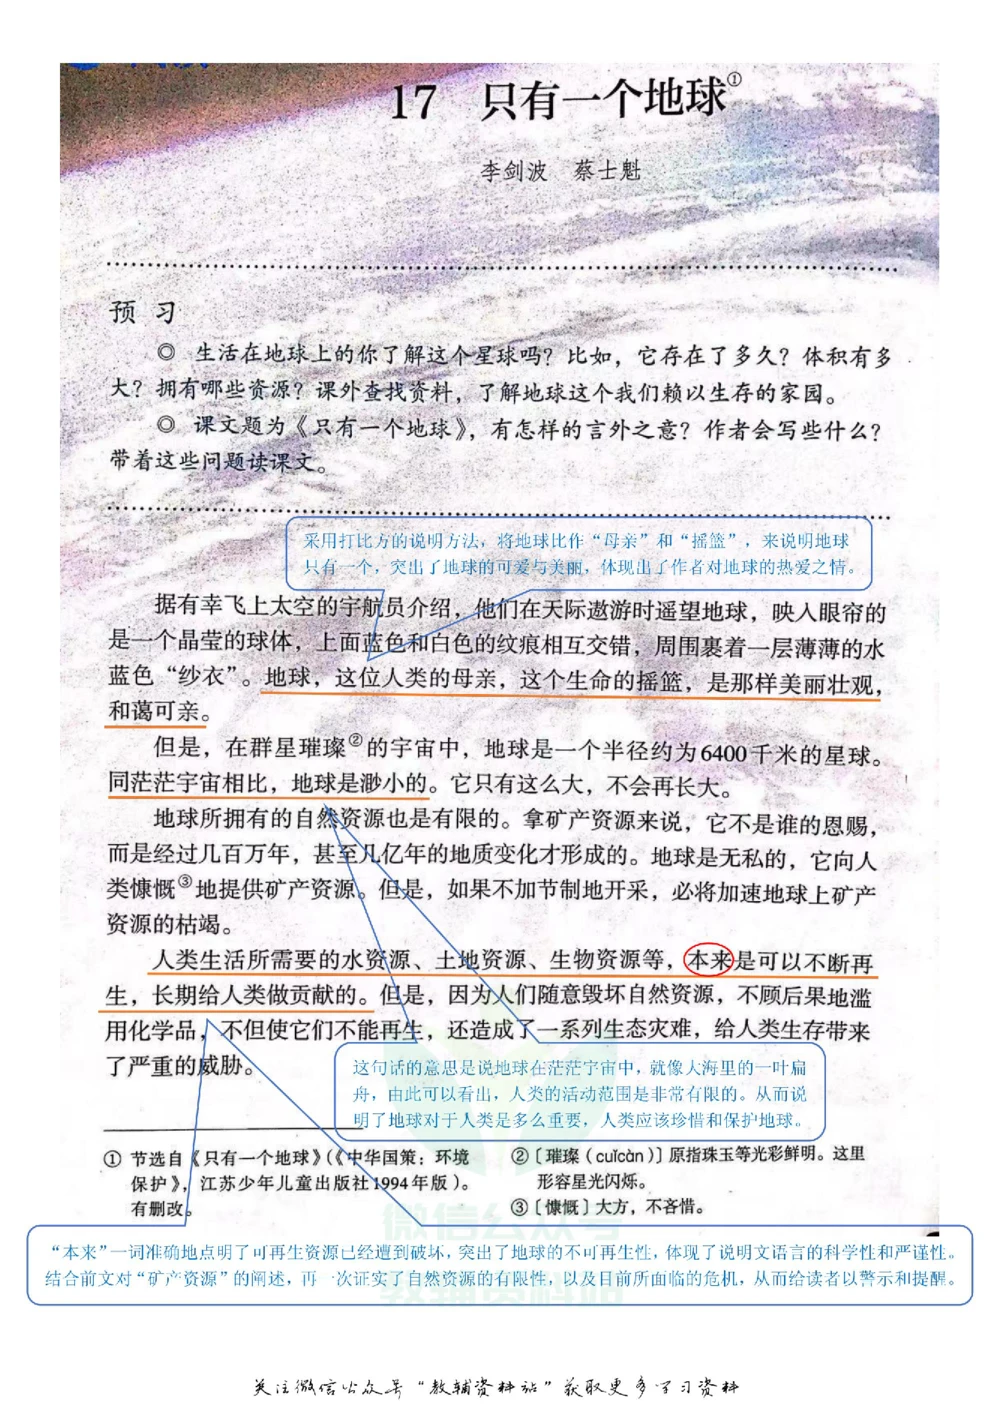 17 只有一个地球①
李剑波 蔡士魁
预习
◎ 生活在地球上的你了解这个星球吗？比如，它存在了多久？体积有多
大？拥有哪些资源？课外查找资料，了解地球这个我们赖以生存的家园。
◎ 课文题为《只有一个地球》，有怎样的言外之意？作者会写些什么？
带着这些问题读课文。
采用打比方的说明方法，将地球比作“母亲”和“摇篮”，来说明地球
只有一个，突出了地球的可爱与美丽，体现出了作者对地球的热爱之情。
据有幸飞上太空的宇航员介绍，他们在天际遨游时遥望地球，映入眼帘的
是一个晶莹的球体，上面蓝色和白色的纹痕相互交错，周围裹着一层薄薄的水
蓝色“纱衣”。地球，这位人类的母亲，这个生命的摇篮，是那样美丽壮观，
和蔼可亲。
但是，在群星璀璨②的宇宙中，地球是一个半径约为6400千米的星球。
同茫茫宇宙相比，地球是渺小的。它只有这么大，不会再长大。
地球所拥有的自然资源也是有限的。拿矿产资源来说，它不是谁的恩赐，
而是经过几百万年，甚至几亿年的地质变化才形成的。地球是无私的，它向人
类慷慨③地提供矿产资源。但是，如果不加节制地开采，必将加速地球上矿产
资源的枯竭。
人类生活所需要的水资源、土地资源、生物资源等，本来是可以不断再
生，长期给人类做贡献的。但是，因为人们随意毁坏自然资源，不顾后果地滥
用化学品，不但使它们不能再生，还造成了一系列生态灾难，给人类生存带来
了严重的威胁。
这句话的意思是说地球在茫茫宇宙中，就像大海里的一叶扁
舟，由此可以看出，人类的活动范围是非常有限的。从而说
明了地球对于人类是多么重要，人类应该珍惜和保护地球。
① 节选自《只有一个地球》（《中华国策：环境
保护》，江苏少年儿童出版社1994年版）。
有删改。
②〔璀璨（cuǐcàn）〕原指珠玉等光彩鲜明。这里
形容星光闪烁。
③〔慷慨〕大方，不吝惜。
微信公众号
“本来”一词准确地点明了可再生资源已经遭到破坏，突出了地球的不可再生性，体现了说明文语言的科学性和严谨性。
结合前文对“矿产资源”的阐述，再一次证实了自然资源的有限性，以及目前所面临的危机，从而给读者以警示和提醒。
教辅资料站
关注微信公众号“教辅资料站”获取更多学习资料